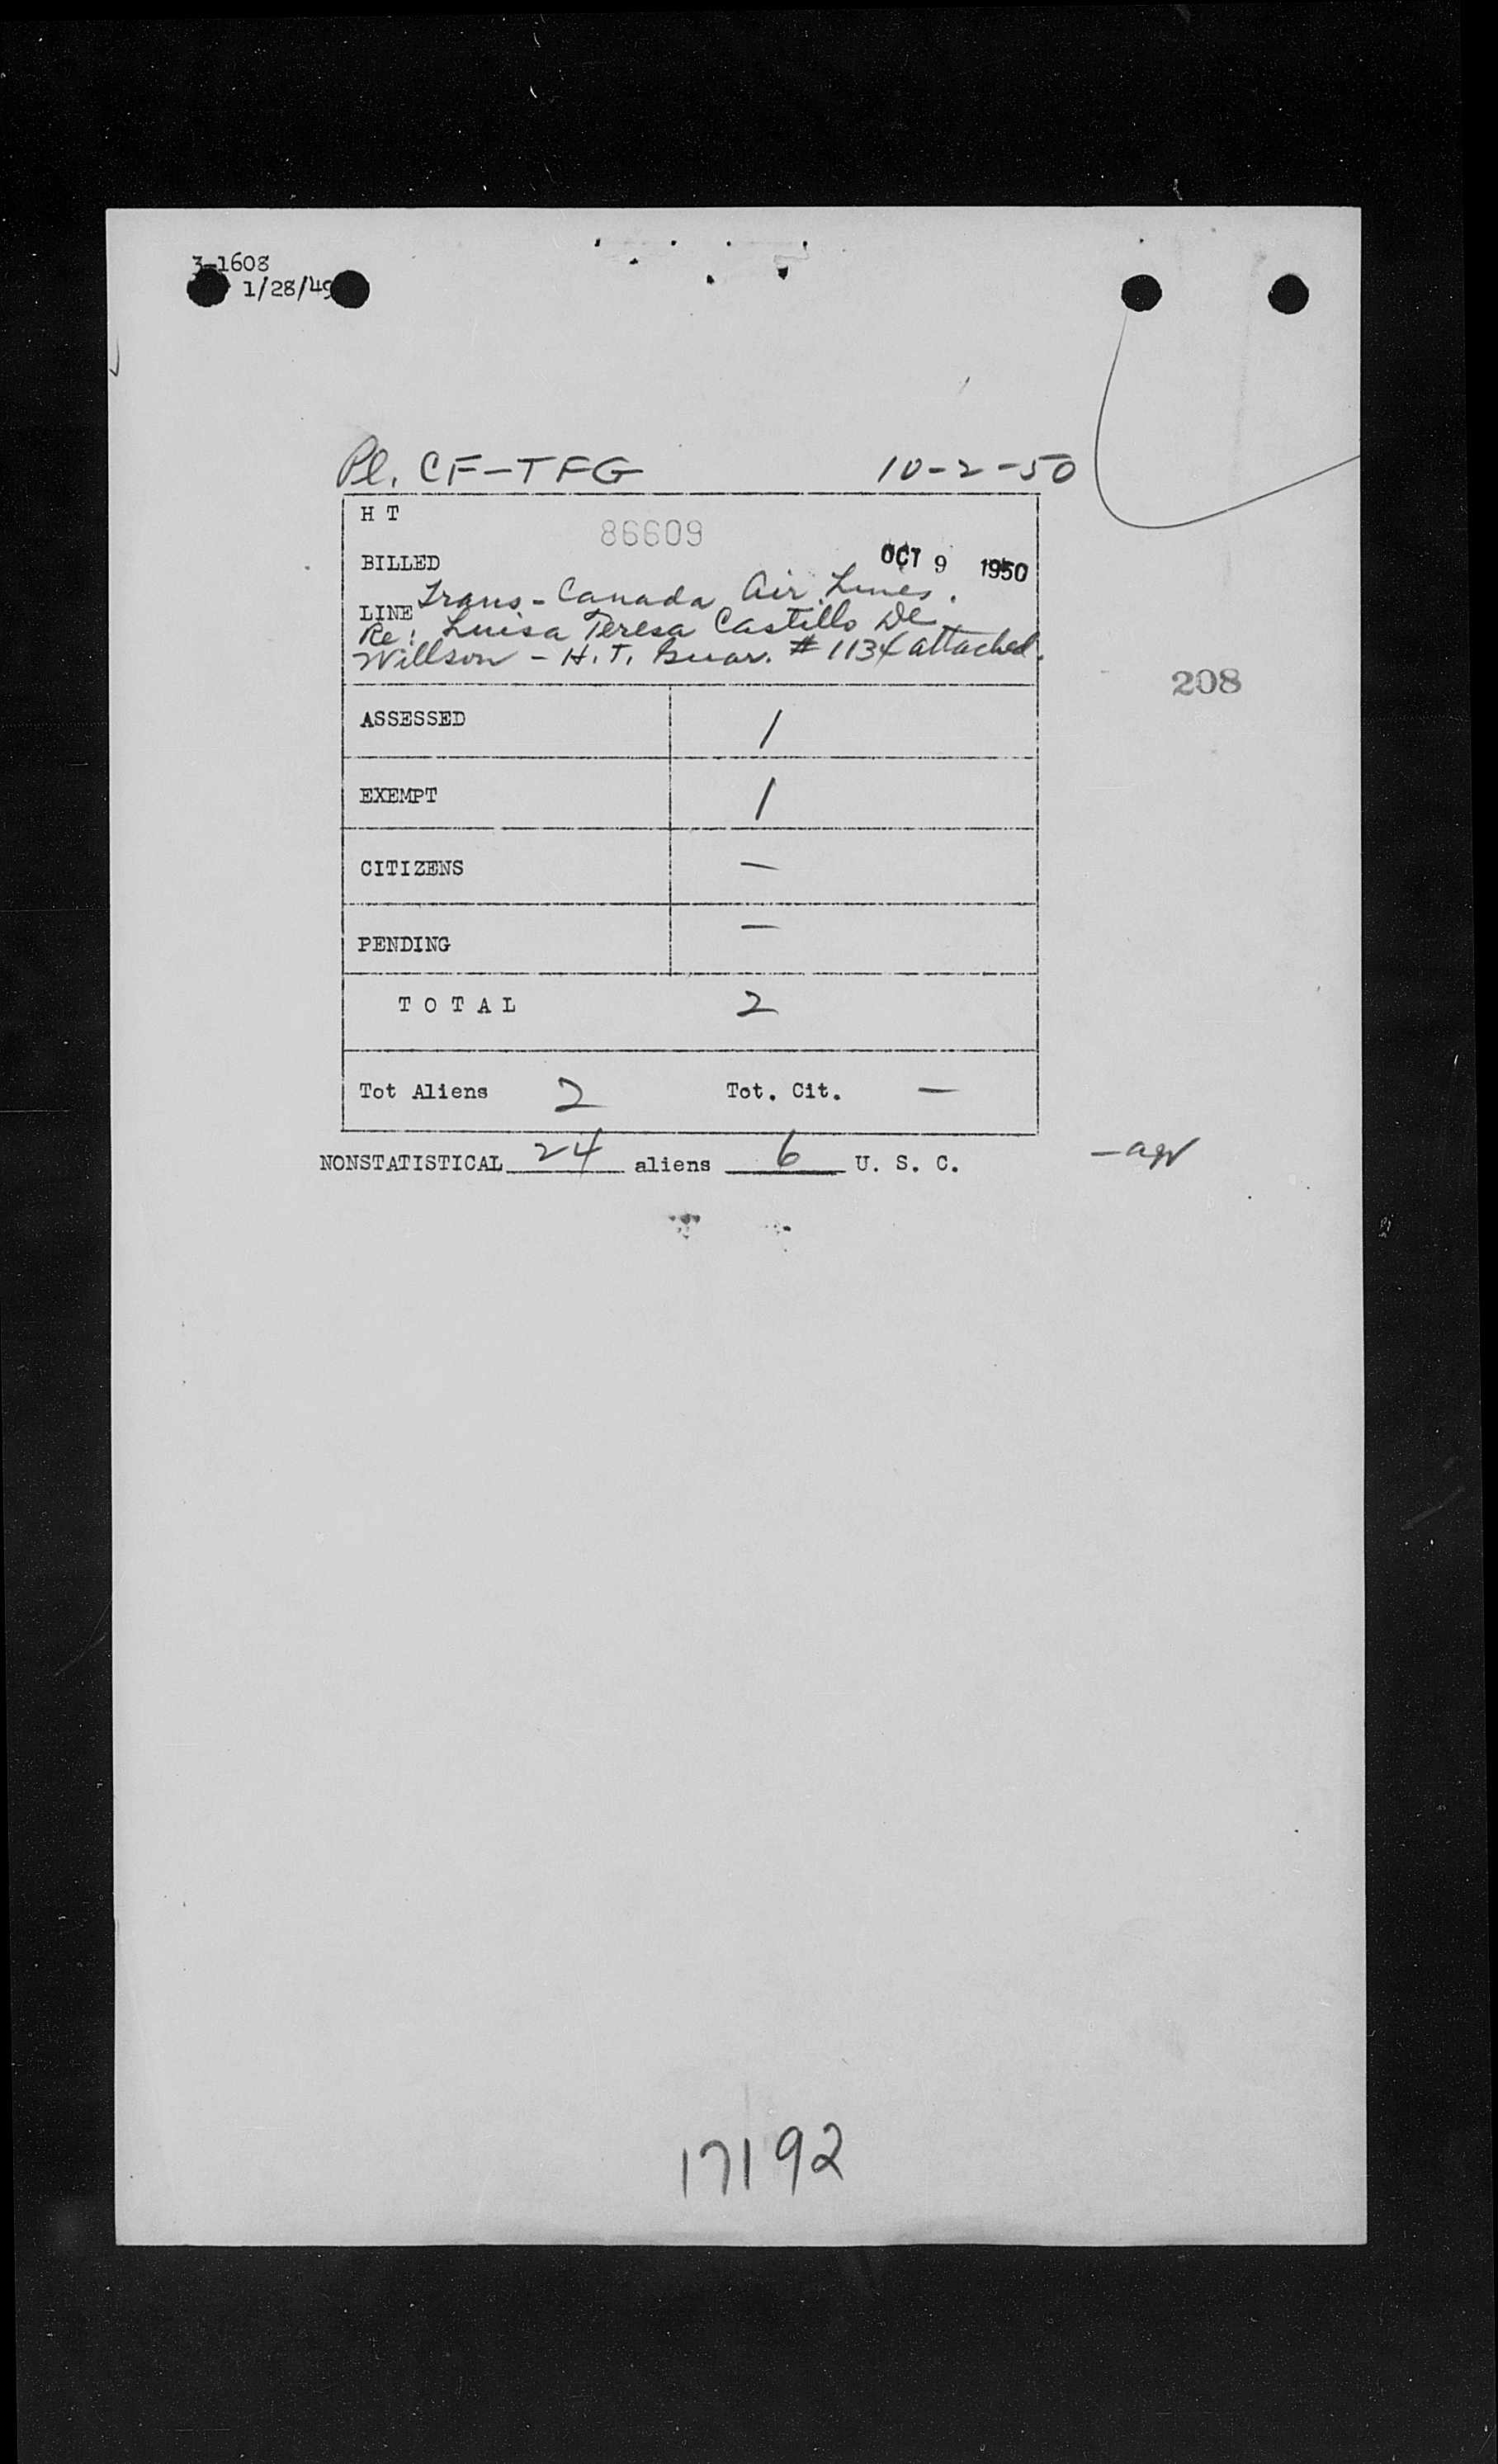 3-1608
1/28/49
Pl. CF-TFG 10-2-50
H T
86609
BILLED OCT 9 1950
LINE Trans-Canada Air Lines.
Re: Luisa Teresa Castillo De
Willson - H.T. Guar. # 1134 attached.
208
ASSESSED 1
EXEMPT 1
CITIZENS —
PENDING —
TOTAL 2
Tot Aliens 2 Tot. Cit. —
NONSTATISTICAL 24 aliens 6 U. S. C.
17192